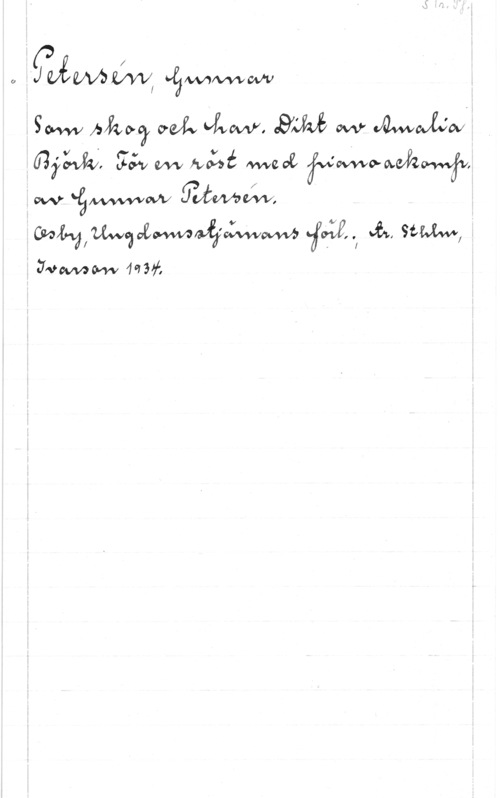 Petersén, Gunnar
Som skog och hav. Dikt av Amalia
Björk. För en röst med pianoackomp.
av Gunnar Petersén.
Osby, Ungdomsstjärnans förl.; tr. Sthlm,
Ivarson 1934.